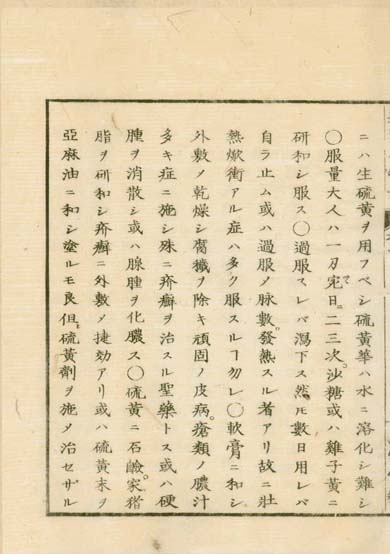 ニハ生硫黄ヲ用フベシ硫黄華ハ水ニ溶化シ難シ
〇服量大人ハ一刄宛日ニ二三次。沙糖或ハ雞子黄ニ
研和シ服ス〇過服スレバ瀉下ス然𪜈數日用レバ
自ラ止ム或ハ過服メ脉數。發熱スル者アリ故ニ壯
熱焮衝アル症ハ多ク服スルヿ勿レ〇軟膏ニ和シ
外敷メ乾燥シ腐穢ヲ除キ頑固ノ皮病。瘡類ノ膿汁
多キ症ニ施シ殊ニ疥癬ヲ治スル聖藥トス或ハ硬
腫ヲ消散シ或ハ腺腫ヲ化膿ス〇硫黄ニ石鹼。家猪
脂ヲ研和シ疥癬ニ外敷メ捷効アリ或ハ硫黄末ヲ
亞麻油ニ和シ塗ルモ良但シ硫黄劑ヲ施メ治セザル